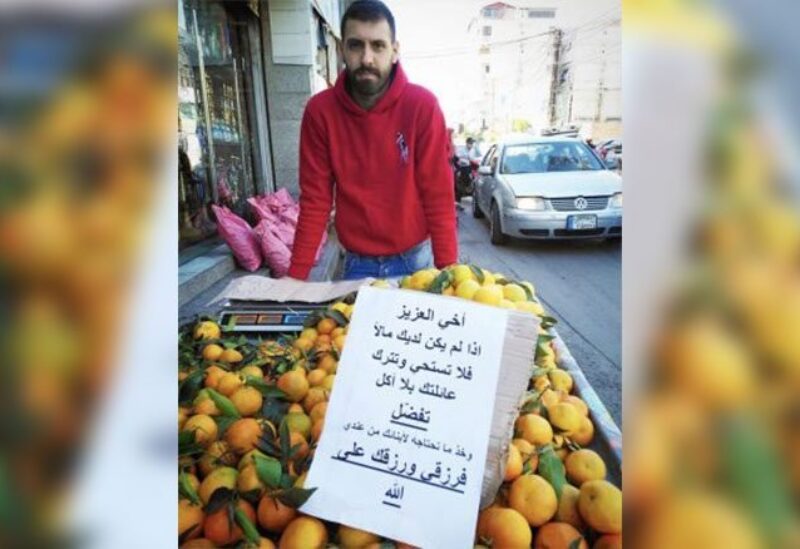 أخي العزيز
اذا لم يكن لديك مالاً
فلا تستحي وتترك
عائلتك بلا أكل
تفضّل
وخذ ما تحتاجه لأبنائك من عندي
فرزقي ورزقك على
الله